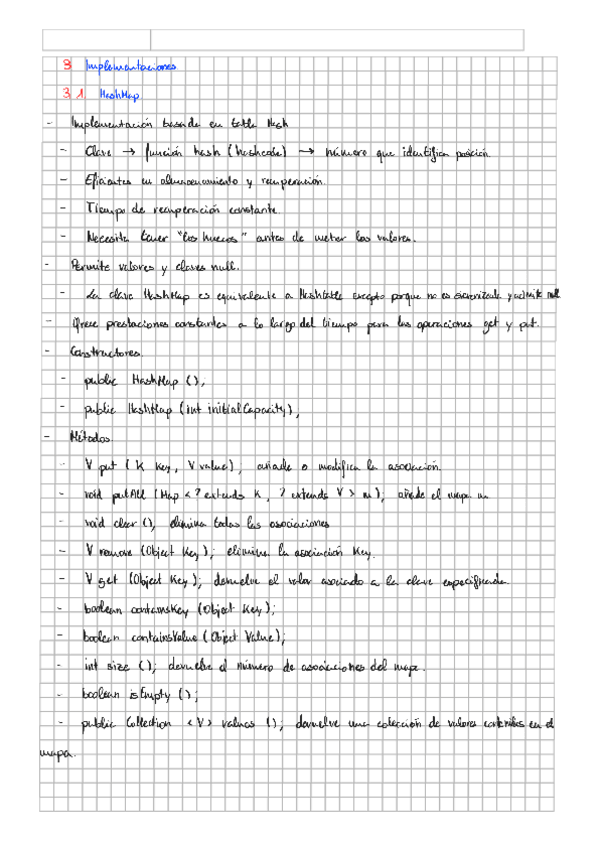 3 Implementaciones
3.1. HashMap
- Implementación basada en tabla Hash
- Clave → función hash (hashcode) → número que identifica posición.
- Eficientes en almacenamiento y recuperación.
- Tiempo de recuperación constante.
- Necesita tener "los huecos" antes de meter los valores.
- Permite valores y claves null.
- La clave HashMap es equivalente a Hashtable excepto porque no es sincronizada y admite null
- Ofrece prestaciones constantes a lo largo del tiempo para las operaciones get y put.
- Constructores.
- public HashMap ();
- public HashMap (int initialCapacity);
- Métodos.
- V put (K Key, V value); añade o modifica la asociación.
- void putAll (Map <? extends K, ? extends V> m); añade el mapa m
- void clear (); elimina todas las asociaciones
- V remove (Object Key); elimina la asociación Key.
- V get (Object Key); devuelve el valor asociado a la clave especificada.
- boolean containsKey (Object Key);
- boolean containsValue (Object Value);
- int size (); devuelve el número de asociaciones del mapa.
- boolean isEmpty ();
- public Collection <V> values (); devuelve una colección de valores contenidos en el
mapa.